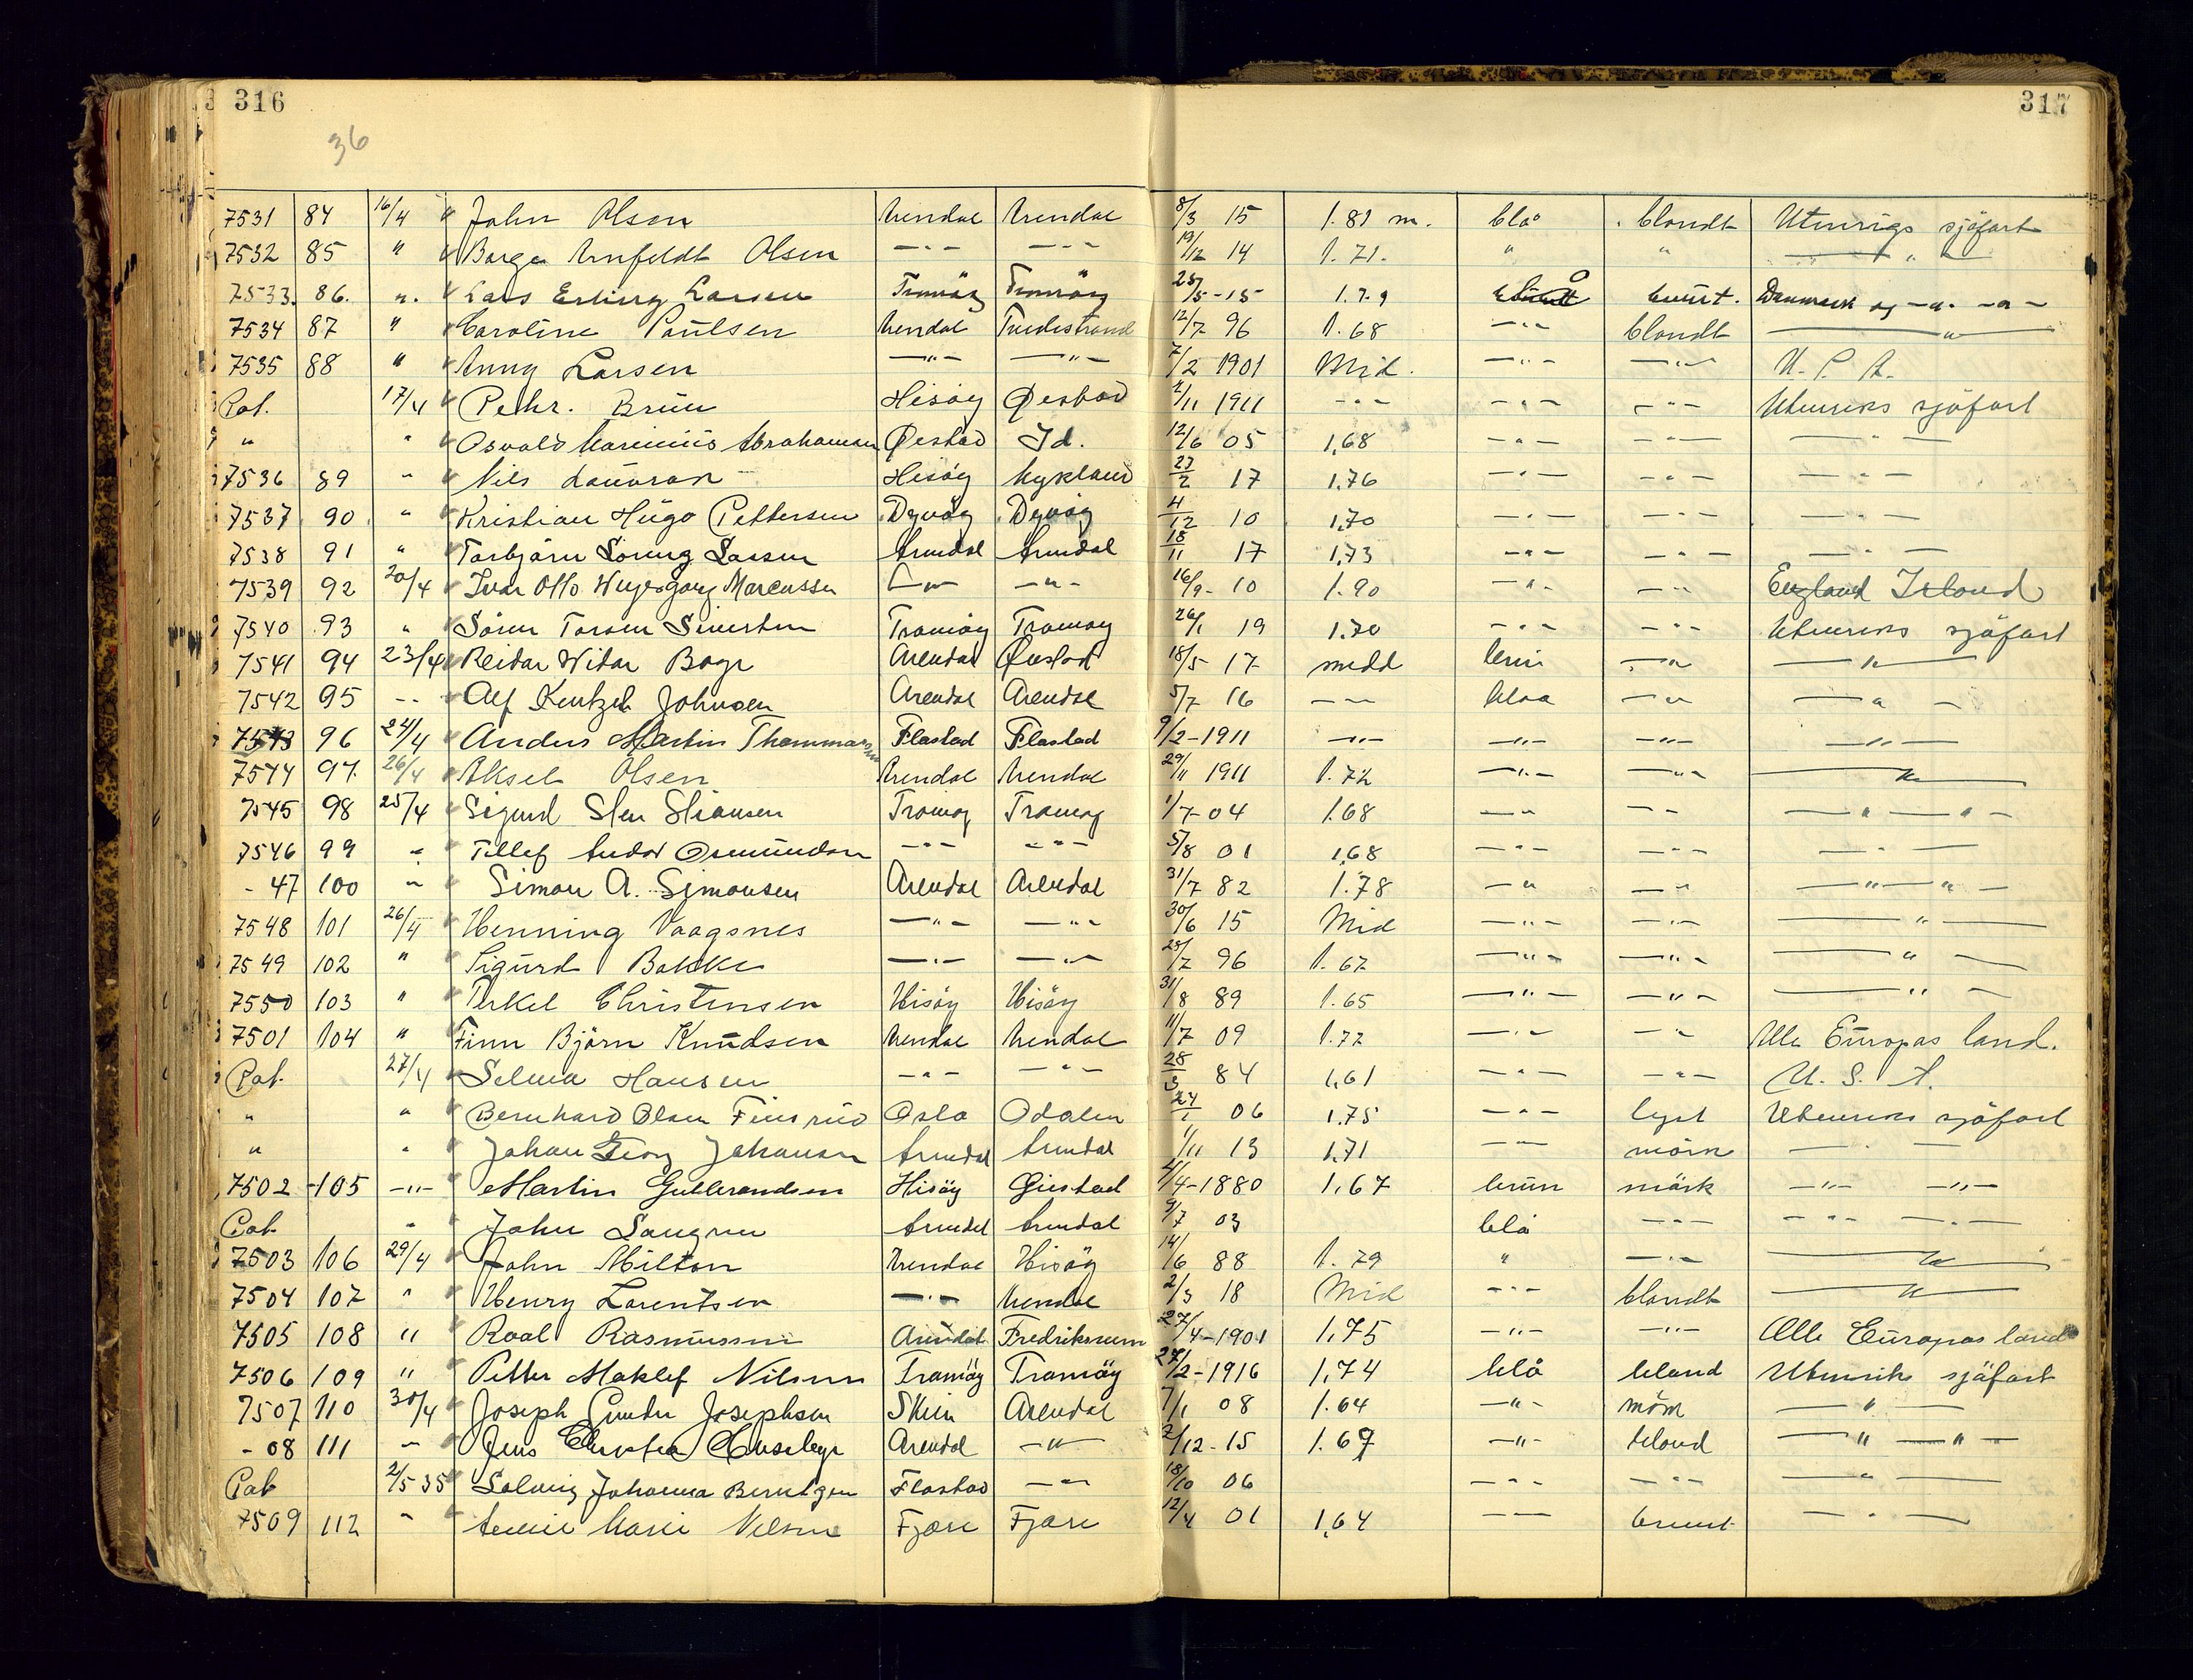 316
317
36
7531 84 16/4 " John Olsen Arendal Arendal 8/3 15 1.81 m. blå blondt Utenrigs sjöfart
7532 85 " " Borge Arnfeldt Olsen —"— —"— 19/12 14 1.71. " " —"—
7533. 86. ". Lars Erling Larsen Tromöy Tromöy 25/5-15 1.79 blå brunt. Danmark og —"— —"—
7534 87 " Caroline Paulsen Arendal Tvedestrand 12/7 96 1.68 —"— blondt —"—
7535 88 " Anny Larsen —"— —"— 7/2 1901 Mid. —"— —"— U.S.A.
Pat. 17/4 Pehr. Brün Hisöy Øiestad 2/11 1911 —"— —"— —"— Utenriks sjöfart
" " Osvald Marinius Abrahamsen Øiestad Id. 12/6 05 1,68 —"— —"— —"—
7536 89 " Nils Lauvrak Hisöy Mykland 27/2 17 1.76 —"— —"— —"—
7537 90 " Kristian Hugo Pettersen Dyvåg Dyvåg 4/12 10 1,70 —"— —"— —"—
7538 91 " Torbjörn Lassen Arendal Arendal 18/11 17 1,73 —"— —"— —"—
7539 92 20/4 Ivar Otto Marcussen —"— —"— 16/9- 10 1.90 —"— —"— England Irland
7540 93 " Sören Torsen Sivertsen Tromöy Tromöy 26/1 19 1.70 —"— —"— Utenriks sjöfart
7541 94 23/4 Reidar Vidar Boge Arendal Øiestad 18/5 17 midd brun —"— —"—
7542 95 -- Alf Johnsen Arendal Arendal 5/7 16 —"— blaa —"— —"—
7543 96 24/4 Anders Martin Thommassen Flastad Flastad 9/2-1911 —"— —"— —"— —"—
7544 97. 26/4 Aksel Olsen Arendal Arendal 29/11 1911 1.72 —"— —"— —"—
7545 98 25/4 Sigurd Sten Stiansen Tromöy Tromöy 1/7-04 1.68 —"— —"— —"— —"—
7546 99 " Tellef Andor Osmundsen —"— —"— 5/8 01 1,68 —"— —"— —"—
- 47 100 " Simon A. Simonsen Arendal Arendal 31/7 82 1.78 —"— —"— —"— —"—
7548 101 26/4 Henning Vaagsnes —"— —"— 30/6 15 Mid —"— —"— —"—
7549 102 " Sigurd Bakke —"— —"— 96 1.67 —"— —"— —"—
7550 103 " Terkel Christensen Hisöy Hisöy 31/8 89 1.65 —"— —"— —"—
7501 104 " Finn Björn Knudsen Arendal Arendal 11/7 09 1.72 —"— —"— Alle Europas land.
Pat. 27/4 Selma Hansen —"— —"— 28/3 84 1,61 —"— —"— U.S.A.
" " Bernhard Olsen Finsrud Oslo Odalen 24/1 06 1.75 —"— lyst Utenriks sjöfart
" " Johan Georg Johansen Arendal Arendal 1/11 13 1,71 —"— mörk —"—
7502 -105 —"— Martin Gulbrandsen Hisöy Øiestad 4/4-1880 1,67 brun mörk —"— —"—
Pat. " John Arendal Arendal 9/7 03 blå —"— —"— —"—
7503 106 29/4 John Milton Arendal Hisöy 14/6 88 1.79 " —"— —"—
7504 107 " Henry Lorentsen —"— Arendal 2/3 18 Mid —"— blondt —"—
7505 108 " Roal Rasmussen Arendal Fredriksvern 27/4-1901 1,75 —"— —"— Alle Europas land
7506 109 " Petter Maklef Nilsen Tromöy Tromöy 27/2-1916 1,74 blå blond Utenriks sjöfart
7507 110 30/4 Joseph Gunder Josephsen Skien Arendal 7/1 08 1.64 —"— mörk —"—
- 08 111 " Jens Arendal —"— 2/12-15 1.67 —"— blond —"— —"—
Pat 2/5 35 Solveig Johanna Berntzen Flastad —"— 18/10 06 —"— —"— —"—
7509 112 " Marie Nilsen Fjære Fjære 12/4 01 1,64 —"— brunt —"—